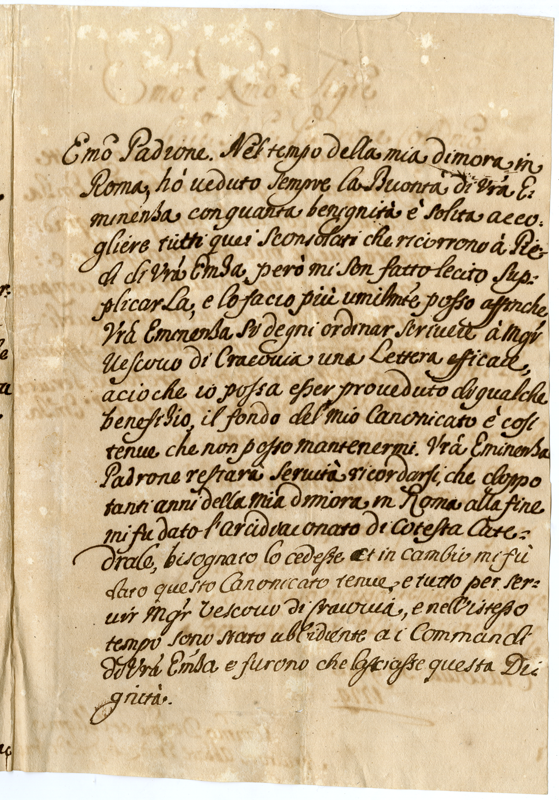 Emõ Padrone. Nel tempo della mia dimora in
Roma, hò ueduto sempre la Buontà di Vrã E-
minenza con quanta benignità è solita acco-
gliere tutti quei Sconsolati che ricorrono à Pie-
di di Vrã Emza, però mi son fatto lecito sup-
plicarLa, e lo facio più umilmte posso affinche
Vrã Eminenza si degni ordinar scriuere à Mgr
Uescouo di Cracouia una Lettera efficace,
acioche io possa esser proueduto di qualche
benefitio, il fondo del mio Canonicato è cosi
tenue che non posso mantenermi. Vrã Eminenza
Padrone restarà seruita ricordarsi, che doppo
tanti anni della mia dimora in Roma alla fine
mi fu dato l'arcidiaconato di Cotesta Cate-
drale, bisognato lo cedesse et in cambio mi fù
dato questo Canonicato tenue, e tutto per ser-
uir Mgr Vescouo di Cracouia, e nell'istesso
tempo sono stato ubbidiente a i Commandi
di Vrã Emza e furono che lasciasse questa Di-
gnità.